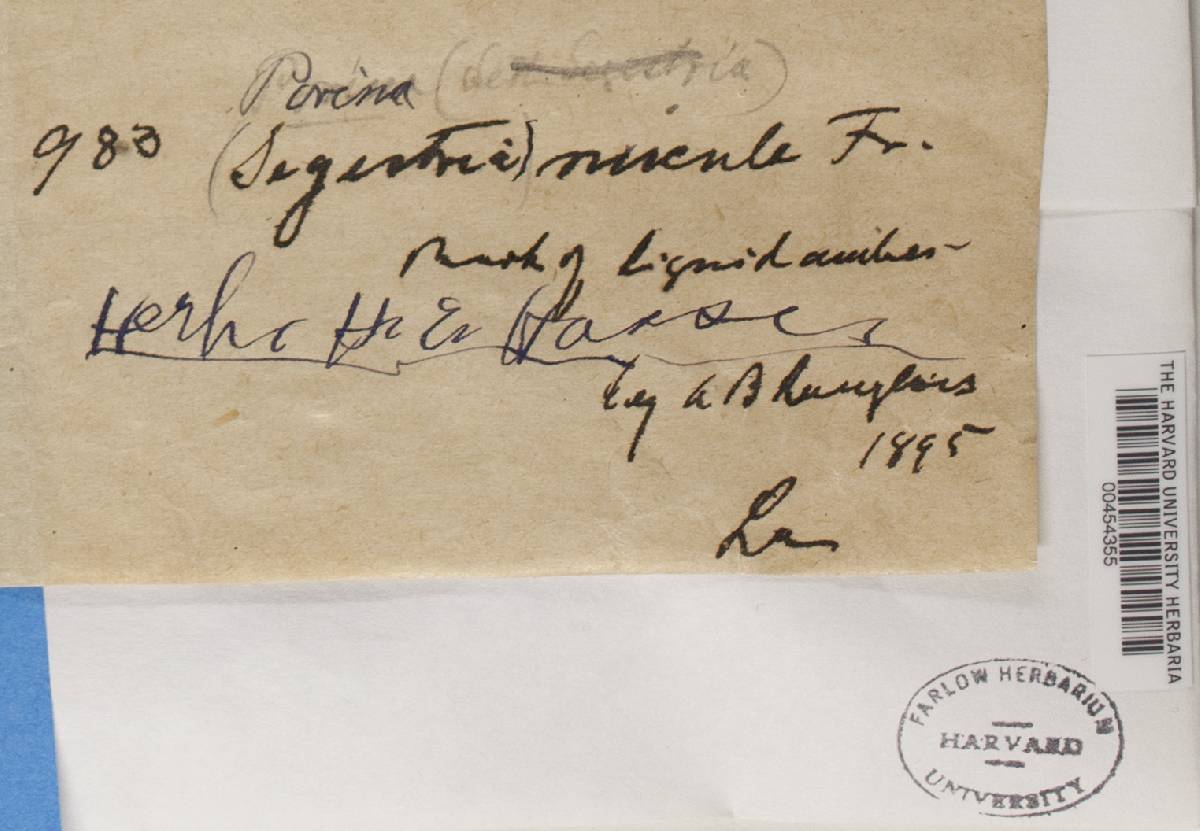 Porina (Segestria)
983 (Segestria) nucula Fr.
Bark of liquidamber
Herb. H. E. Hasse.
Leg A B Langlois
1895
La
THE HARVARD UNIVERSITY HERBARIA
00454355
FARLOW HERBARIUM
HARVARD
UNIVERSITY